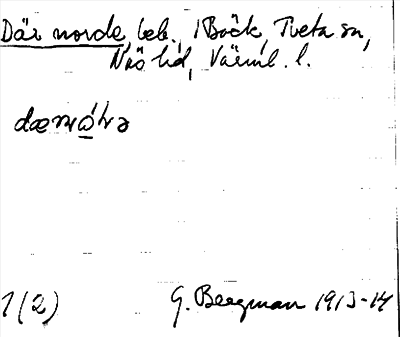 Där norde beb., 1 Böck, Tveta sn,
Näs hd, Värml. l.
1(2) G. Bergman 1913-14